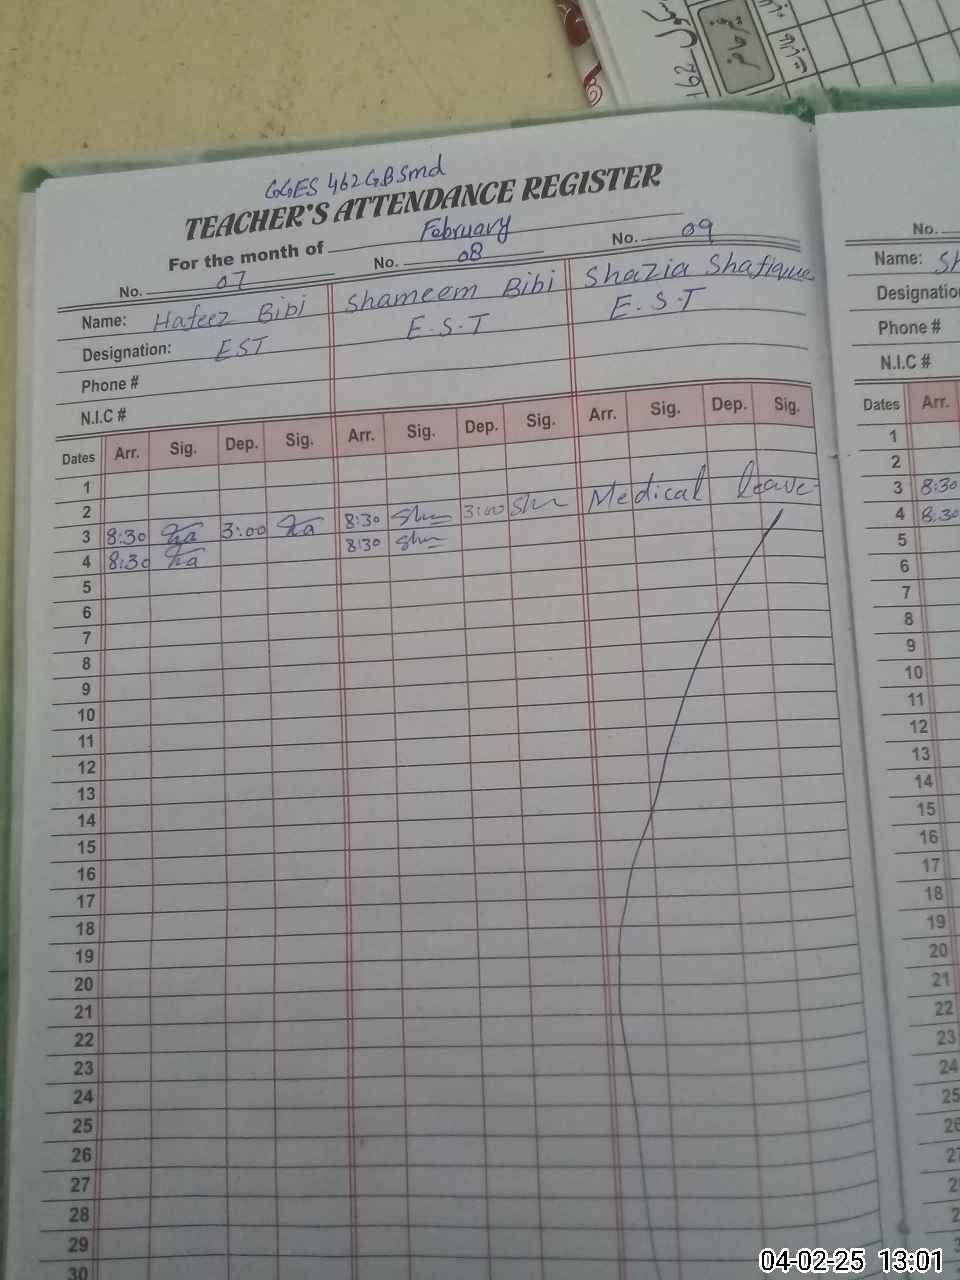 GGES 462 G.B Smd
TEACHER'S ATTENDANCE REGISTER
For the month of February
No. 07 No. 08 No. 09
Name: Hafeez Bibi Shameem Bibi Shazia Shafique
Designation: EST E.S.T E.S.T
Phone #
N.I.C #
Dates Arr. Sig. Dep. Sig. Arr. Sig. Dep. Sig. Arr. Sig. Dep. Sig.
1
2
3 8:30 3:00 8:30 3:00 Medical leave
4 8:30 8:30
5
6
7
8
9
10
11
12
13
14
15
16
17
18
19
20
21
22
23
24
25
26
27
28
29
30
No.
Name: Sh
Designatio
Phone #
N.I.C #
Dates Arr.
1
2
3 8:30
4 8:30
5
6
7
8
9
10
11
12
13
14
15
16
17
18
19
20
21
22
23
24
25
26
27
04-02-25 13:01